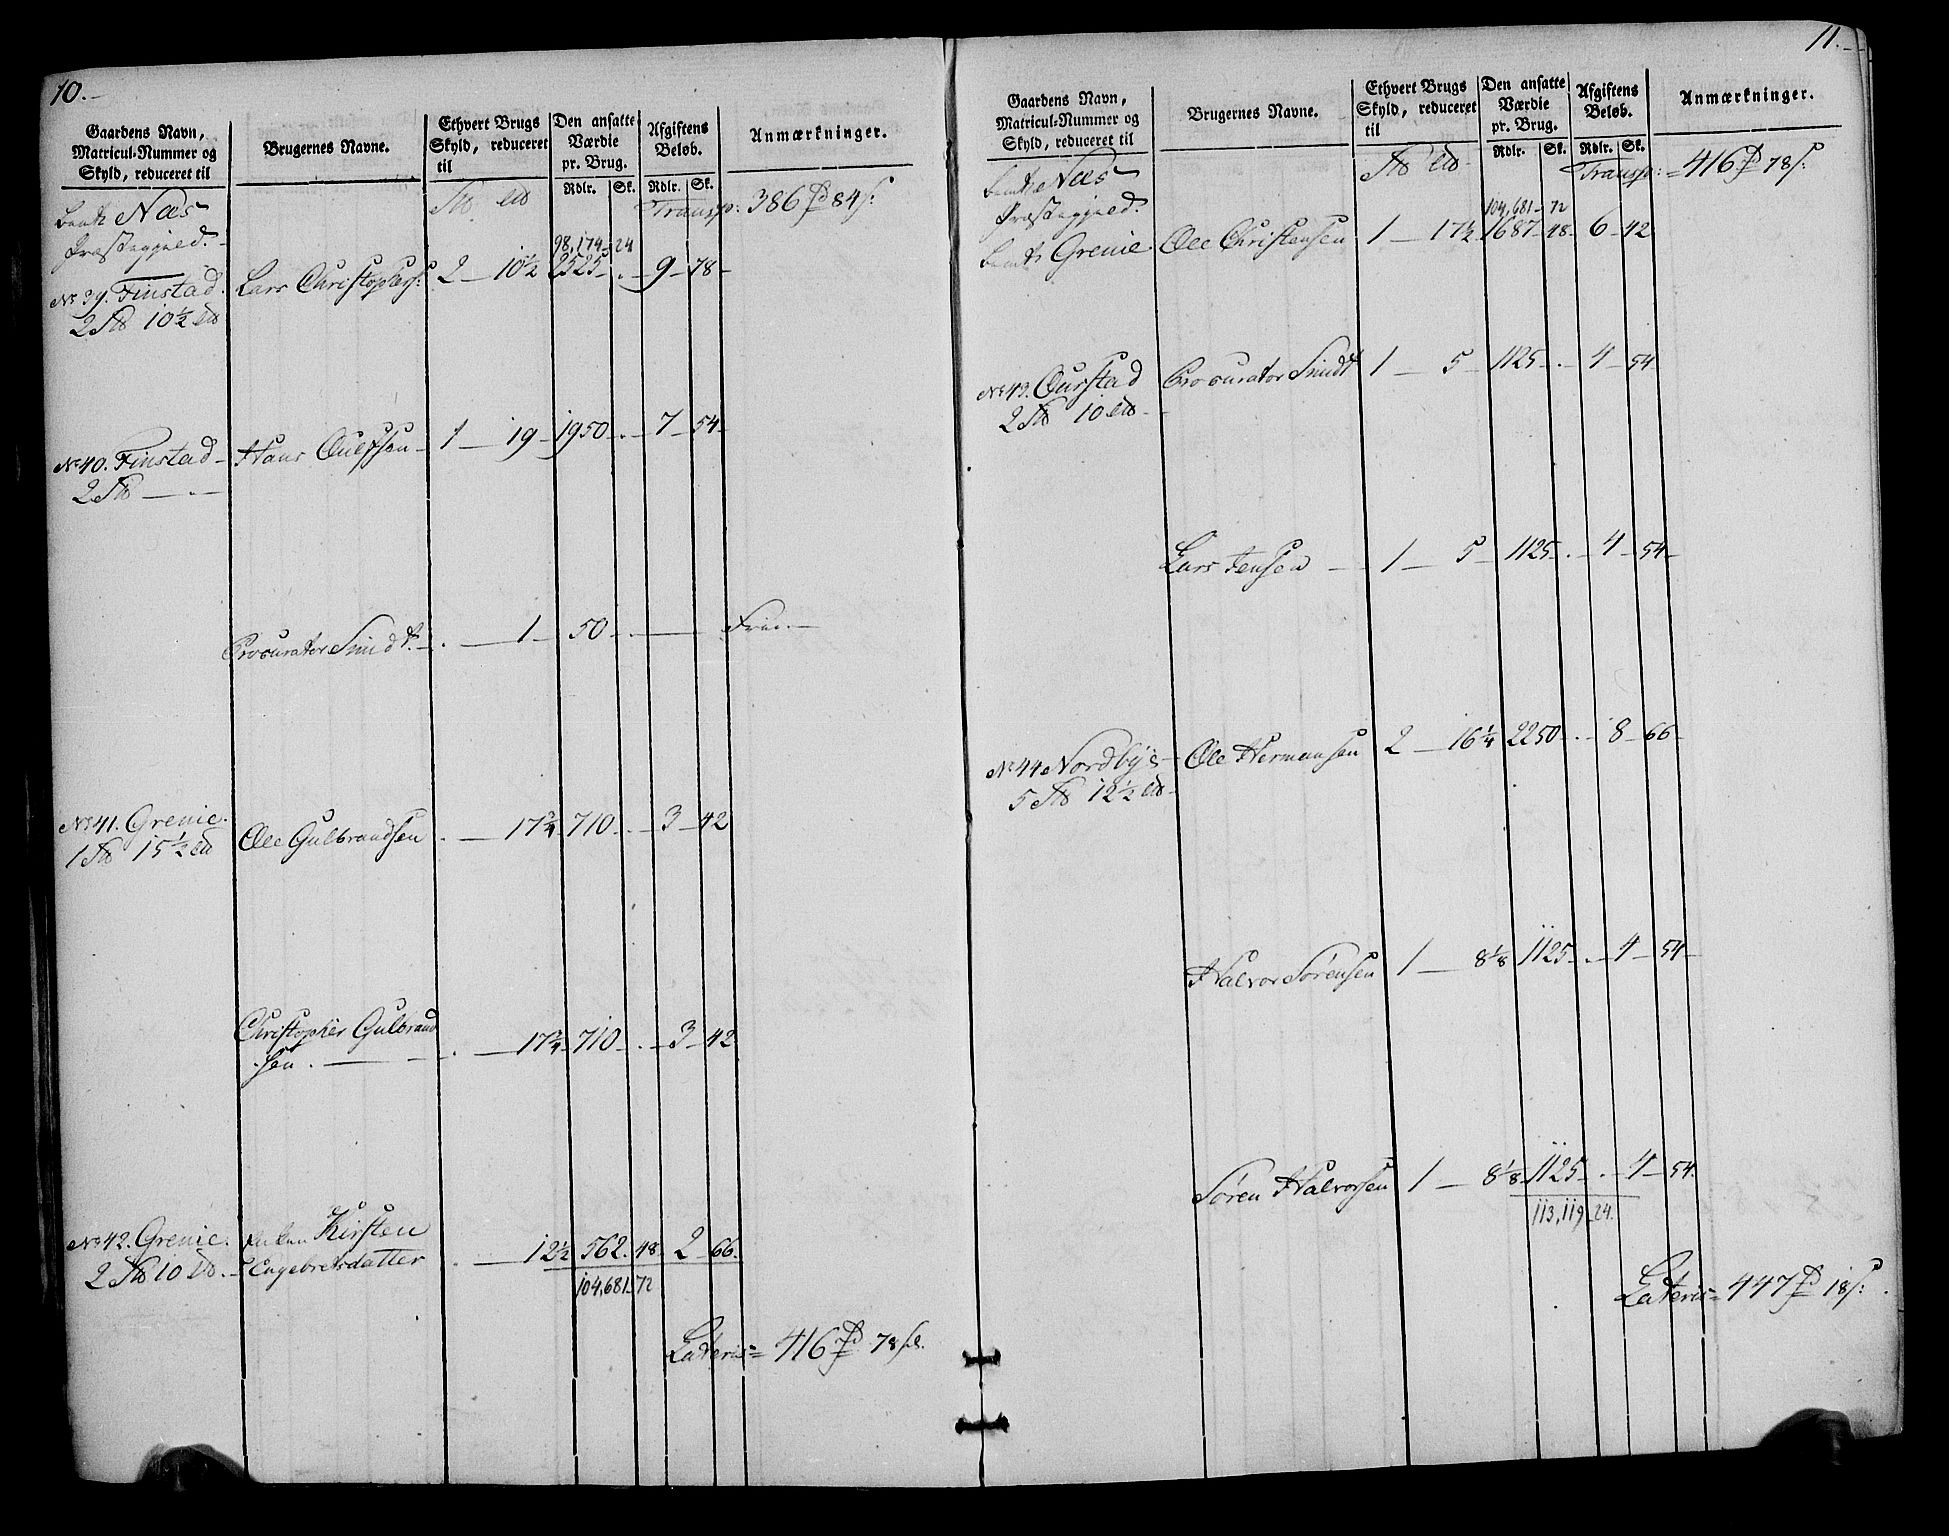 10.-
Gaardens Navn, Matricul-Nummer og Skyld, reduceret til | Brugernes Navne. | Ethvert Brugs Skyld, reduceret til | Den ansatte Værdie pr. Brug. Rdlr. Sk. | Afgiftens Beløb. Rdlr. Sk. | Anmærkninger.
Næs
Præstegjeld.
Transp: 386 84
98,174 - 24
No 39. Finstad. Lars Christophers: 2 - 10½ 2525 - . - 9 - 78 -
2 10½
No 40. Finstad - Hans Oulfsen - 1 - 19 - 1950 - . - 7 - 54 -
2
Procurator Smidt. - . - 1 - 50 - . - Frie. -
No 41. Grenie. Ole Gulbrandsen . - 17¾ 710 - . - 3 - 42
1 15½
Christopher Gulbrand
sen. - . - 17¾ 710 - . - 3 - 42
No 42. Grenie. Enken Kirsten
2 10 Engebretsdatter . - 12½ 562. 48 - 2 - 66.
104,681 - 72
Lateris = 416 78
11.-
Gaardens Navn, Matricul-Nummer og Skyld, reduceret til | Brugernes Navne. | Ethvert Brugs Skyld, reduceret til | Den ansatte Værdie pr. Brug. Rdlr. Sk. | Afgiftens Beløb. Rdlr. Sk. | Anmærkninger.
Næs
Præstegjeld.
Transp: = 416 78
104,681 - 72
Grenie Ole Christensen 1 - 17½ 1687 - 48 - 6 - 42
No 43. Ourstad Procurator Smidt 1 - 5 - 1125 - . - 4 - 54
2 10
Lars Jensen - 1 - 5 - 1125 - . - 4 - 54 -
No 44 Nordbye - Ole Hermansen 2 - 16¼ 2250 - . - 8 - 66 -
5 12½
Halvor Sørensen 1 - 8⅛ 1125 - . - 4 - 54 -
Søren Halvorsen 1 - 8⅛ 1125 - . - 4 - 54.
113,119 - 24.
Lateris = 447 18